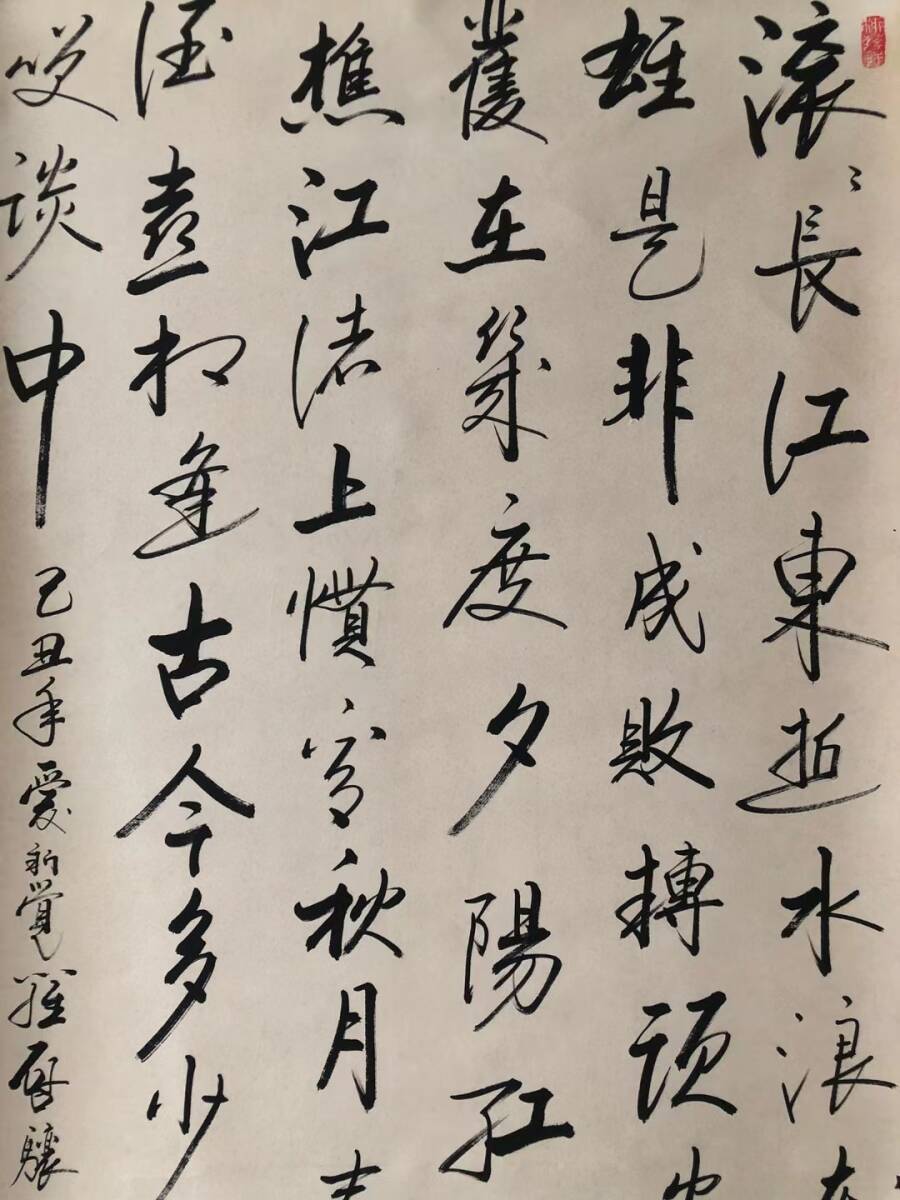 滚〻長江東逝水浪
雄是非成敗轉頭
舊在幾度夕陽紅
樵江渚上慣看秋月
酒喜相逢古今多少
咲談中 己丑年愛新覺羅启驤